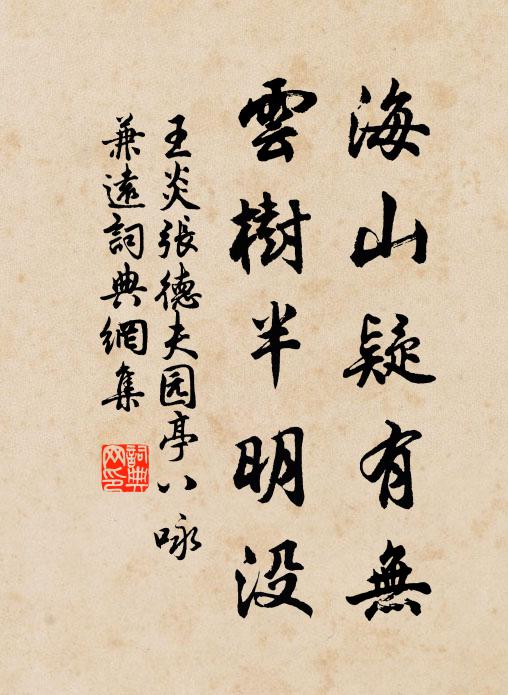 海山疑有無
雲樹半明没
王炎張德夫园亭八咏
兼遠詞典網集
詞典
网印